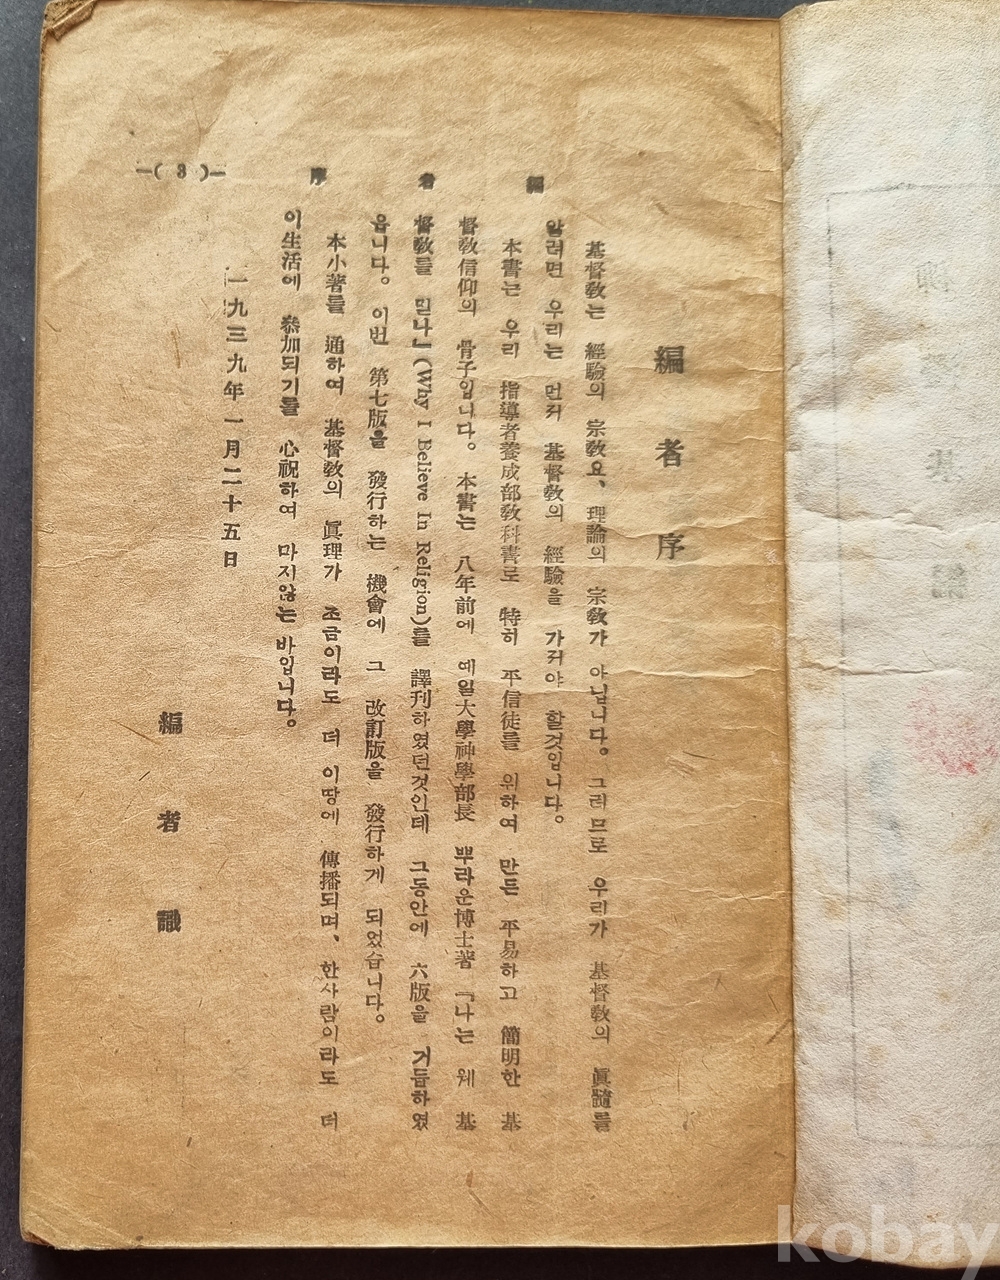 編者序
基督敎는 經驗의 宗敎요、理論의 宗敎가 아닙니다。그러므로 우리가 基督敎의 眞髓를
알려면 우리는 먼저 基督敎의 經驗을 가져야 할것입니다。
本書는 우리 指導者養成部敎科書로 特히 平信徒를 위하여 만든 平易하고 簡明한 基
督敎信仰의 骨子입니다。本書는 八年前에 예일大學神學部長 뿌라운博士著 『나는 웨 基
督敎를 믿나』(Why I Believe In Religion)를 譯刊하였던것인데 그동안에 六版을 거듭하였
읍니다。이번 第七版을 發行하는 機會에 그 改訂版을 發行하게 되었습니다。
本小著를 通하여 基督敎의 眞理가 조금이라도 더 이땅에 傳播되며、한사람이라도 더
이生活에 參加되기를 心祝하여 마지않는바입니다。
一九三九年一月二十五日
編者識
編者序
—( 3 )—
kobay